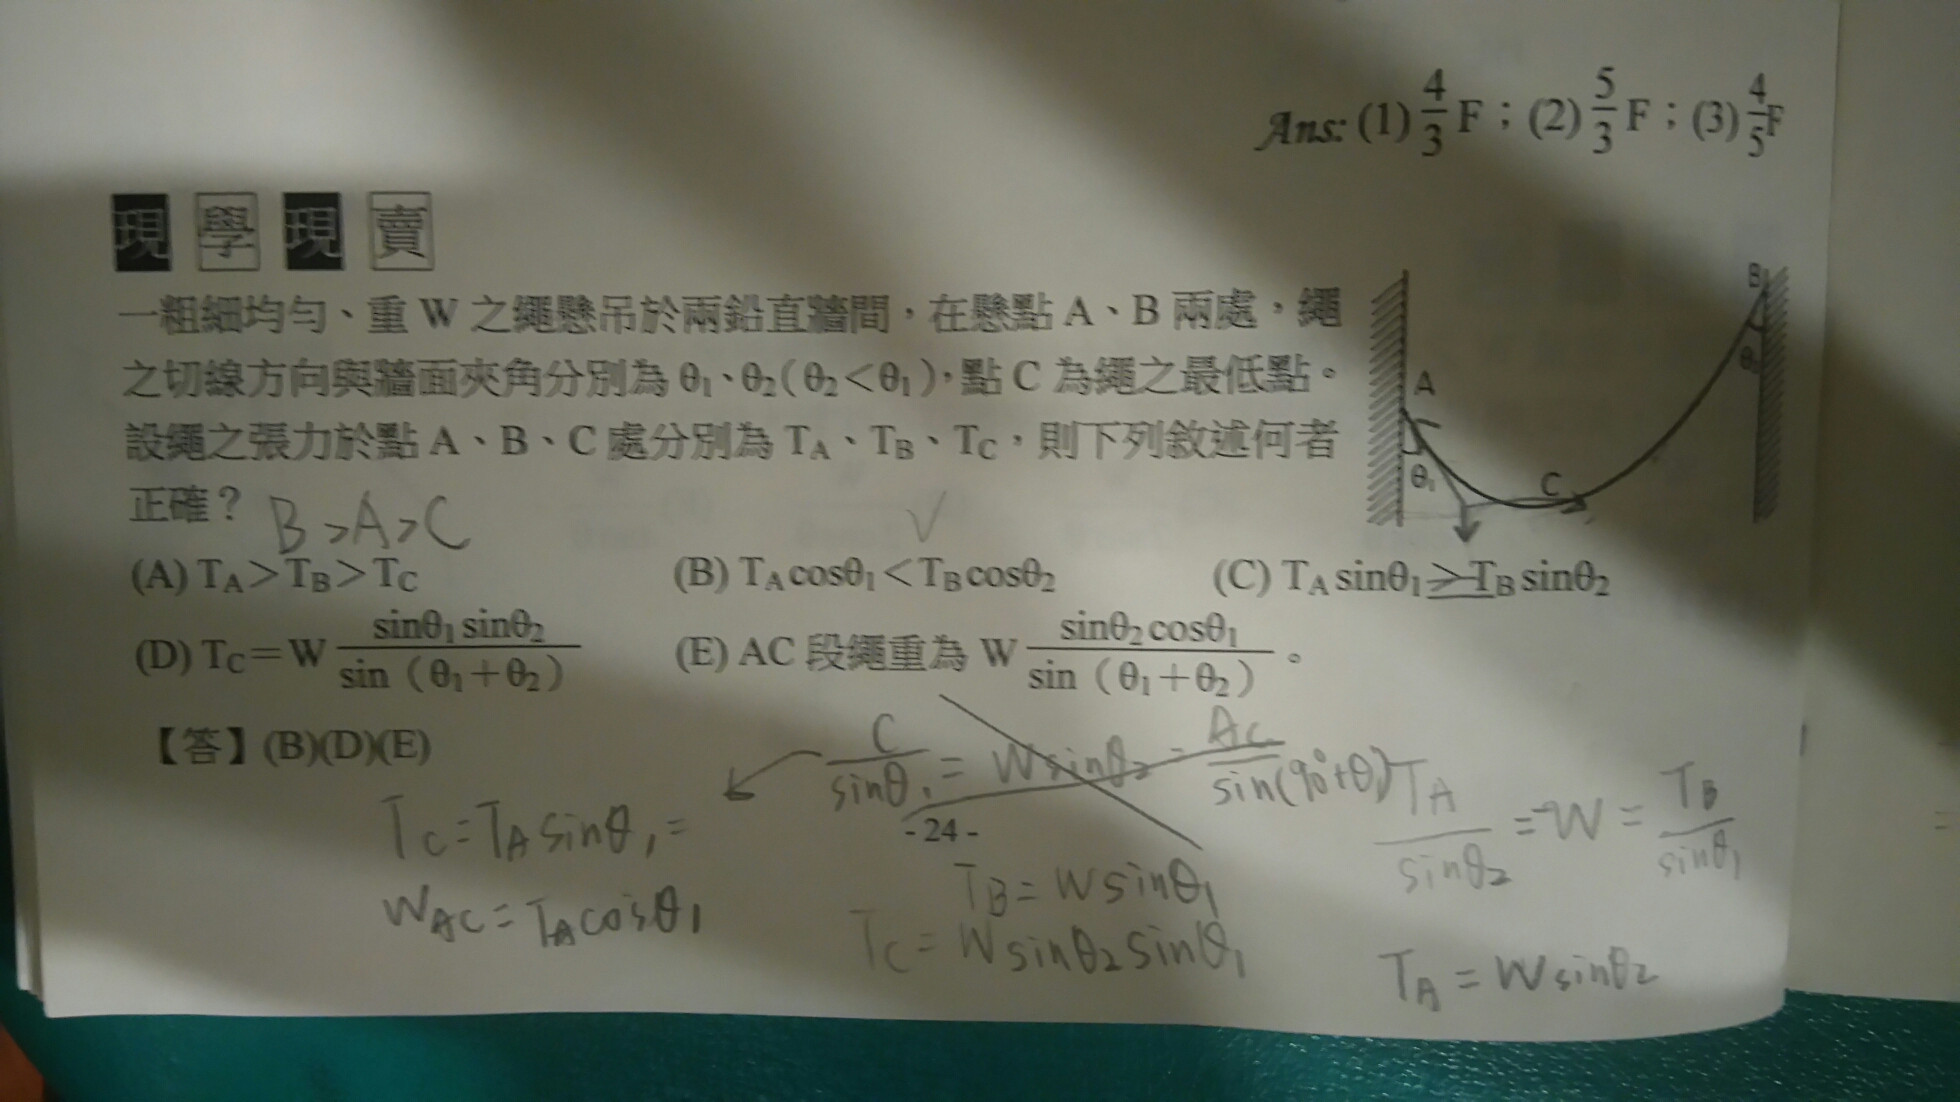 Ans: (1) 4/3 F；(2) 5/3 F；(3) 4/5 F
現學現賣
一粗細均勻、重 W 之繩懸吊於兩鉛直牆間，在懸點 A、B 兩處，繩
之切線方向與牆面夾角分別為 θ₁、θ₂(θ₂＜θ₁)，點 C 為繩之最低點。
設繩之張力於點 A、B、C 處分別為 TA、TB、TC，則下列敘述何者
正確？ B>A>C
B
A
θ₁
θ₂
C
(A) TA＞TB＞TC (B) TA cosθ₁＜TB cosθ₂ (C) TA sinθ₁＞TB sinθ₂
(D) TC＝W sinθ₁ sinθ₂/sin（θ₁＋θ₂） (E) AC 段繩重為 W sinθ₂ cosθ₁/sin（θ₁＋θ₂）。
【答】(B)(D)(E)
C/sinθ₁ = W sinθ₂ = AC/sin(90°+θ)
TA/sinθ₂ = W = TB/sinθ₁
TC = TA sinθ₁ =
- 24 -
WAC = TA cosθ₁
TB = W sinθ₁
TC = W sinθ₂ sinθ₁
TA = W sinθ₂